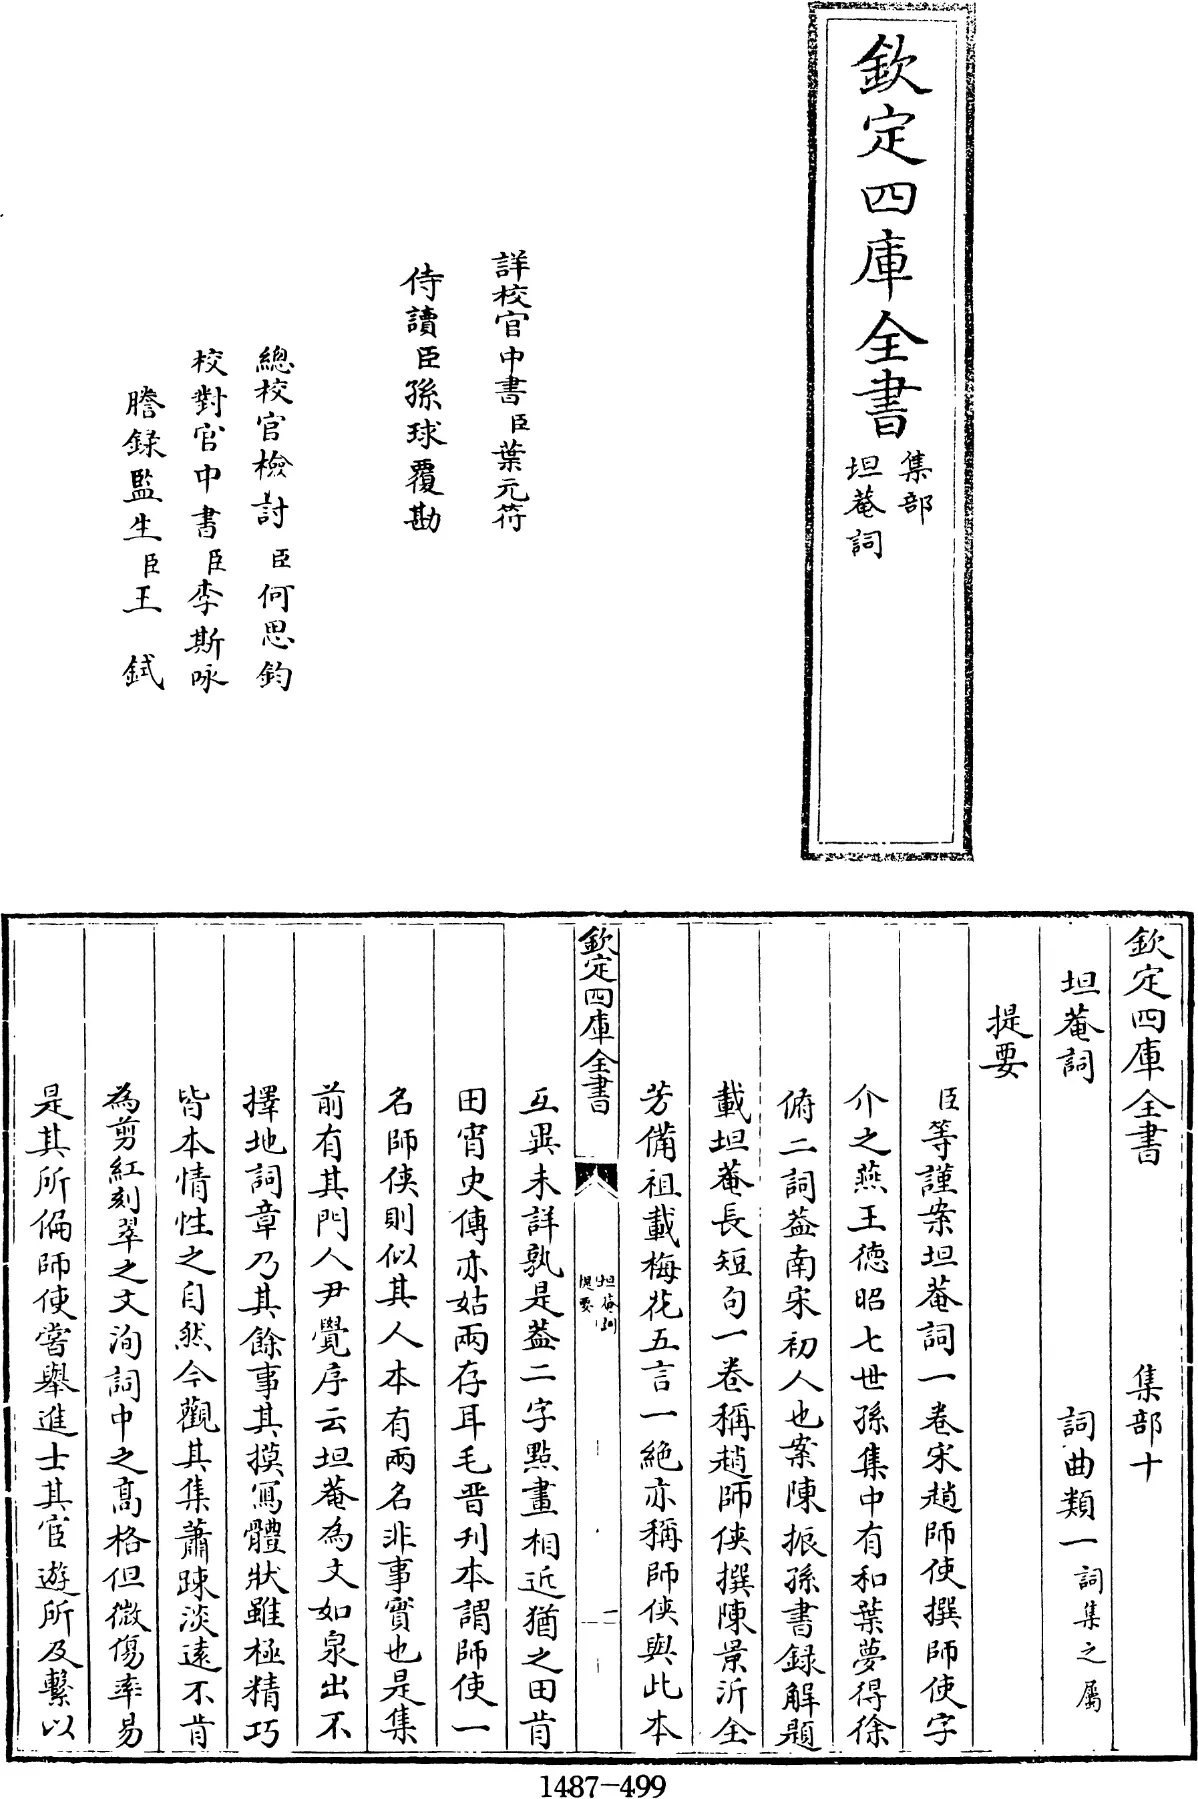 欽定四庫全書
集部
坦菴詞
詳校官中書臣葉元符
侍讀臣孫球覆勘
總校官檢討臣何思鈞
校對官中書臣李斯咏
謄錄監生臣王 鉽
欽定四庫全書 集部十
坦菴詞 詞曲類一詞集之屬
提要
臣等謹案坦菴詞一卷宋趙師使撰師使字
介之燕王德昭七世孫集中有和葉夢得徐
俯二詞葢南宋初人也案陳振孫書録解題
載坦菴長短句一卷稱趙師俠撰陳景沂全
芳備祖載梅花五言一絶亦稱師俠與此本
欽定四庫全書
坦菴詞
提要
一
互異未詳孰是葢二字點畫相近猶之田肯
田宵史傳亦姑兩存耳毛晋刊本謂師使一
名師俠則似其人本有兩名非事實也是集
前有其門人尹覺序云坦菴為文如泉出不
擇地詞章乃其餘事其摸寫體狀雖極精巧
皆本情性之自然今觀其集蕭踈淡逺不肯
為剪紅刻翠之文洵詞中之高格但微傷率易
是其所偏師使嘗舉進士其宦遊所及繫以
1487-499